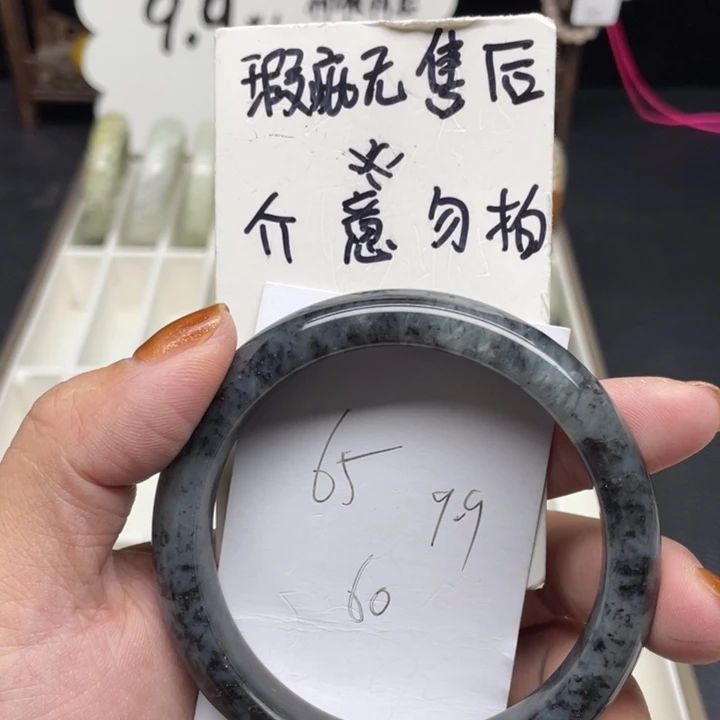 9.9
瑕疵无售后
※
介意勿拍
65
9.9
60